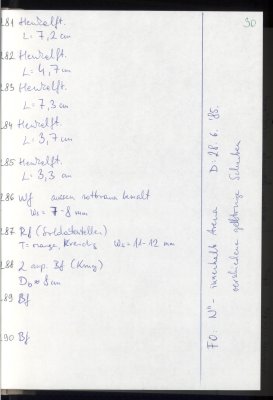 30
281 Henkelfr.
L = 7,2 cm
282 Henkelfr.
L = 4,7 cm
283 Henkelfr.
L = 7,3 cm
284 Henkelfr.
L = 3,7 cm
285 Henkelfr.
L = 3,3 cm
286 Wf aussen rotbraun bemalt
Ws = 7-8 mm
287 Rf (Soldatenteller)
T = orange, Ws = 11-12 mm
288 2 anp. Bf (Krug)
D = 8 cm
289 Bf
290 Bf
FO: N - innerhalb Arena D: 28.6.85
verschiedene Scherben